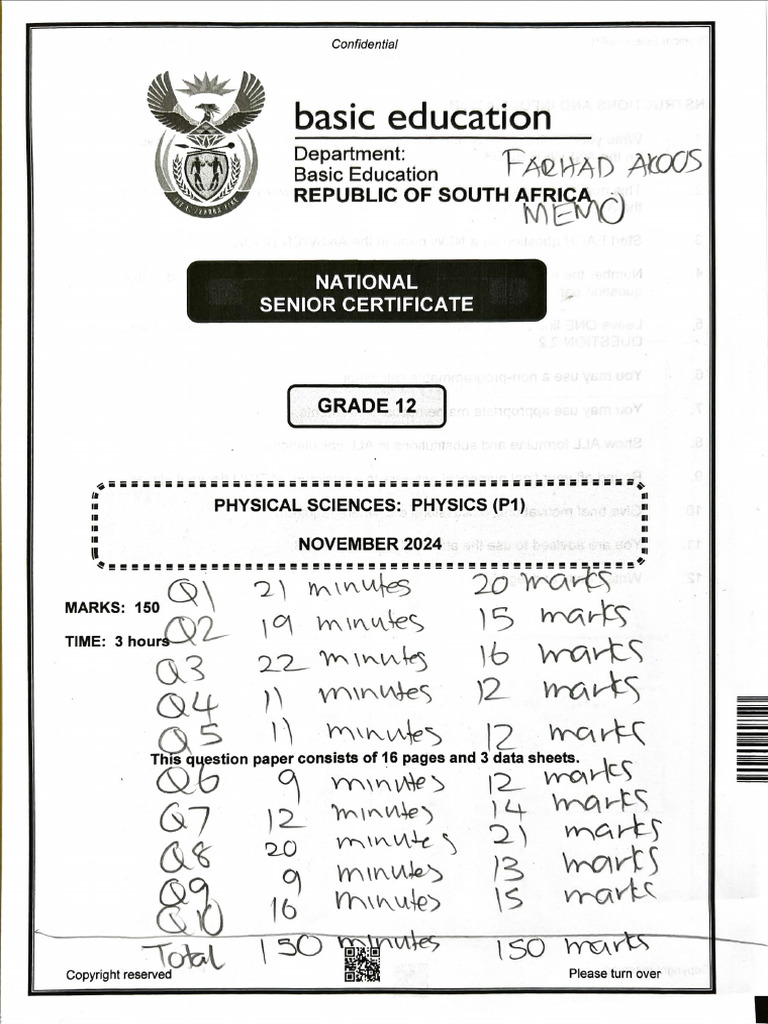 Confidential
basic education
Department:
Basic Education
REPUBLIC OF SOUTH AFRICA
FARHAD AKOOS
MEMO
NATIONAL
SENIOR CERTIFICATE
GRADE 12
PHYSICAL SCIENCES: PHYSICS (P1)
NOVEMBER 2024
MARKS: 150
TIME: 3 hours
Q1 21 minutes 20 marks
Q2 19 minutes 15 marks
Q3 22 minutes 16 marks
Q4 11 minutes 12 marks
Q5 11 minutes 12 marks
This question paper consists of 16 pages and 3 data sheets.
Q6 9 minutes 12 marks
Q7 12 minutes 14 marks
Q8 20 minutes 21 marks
Q9 9 minutes 13 marks
Q10 16 minutes 15 marks
Total 150 minutes 150 marks
Copyright reserved
Please turn over